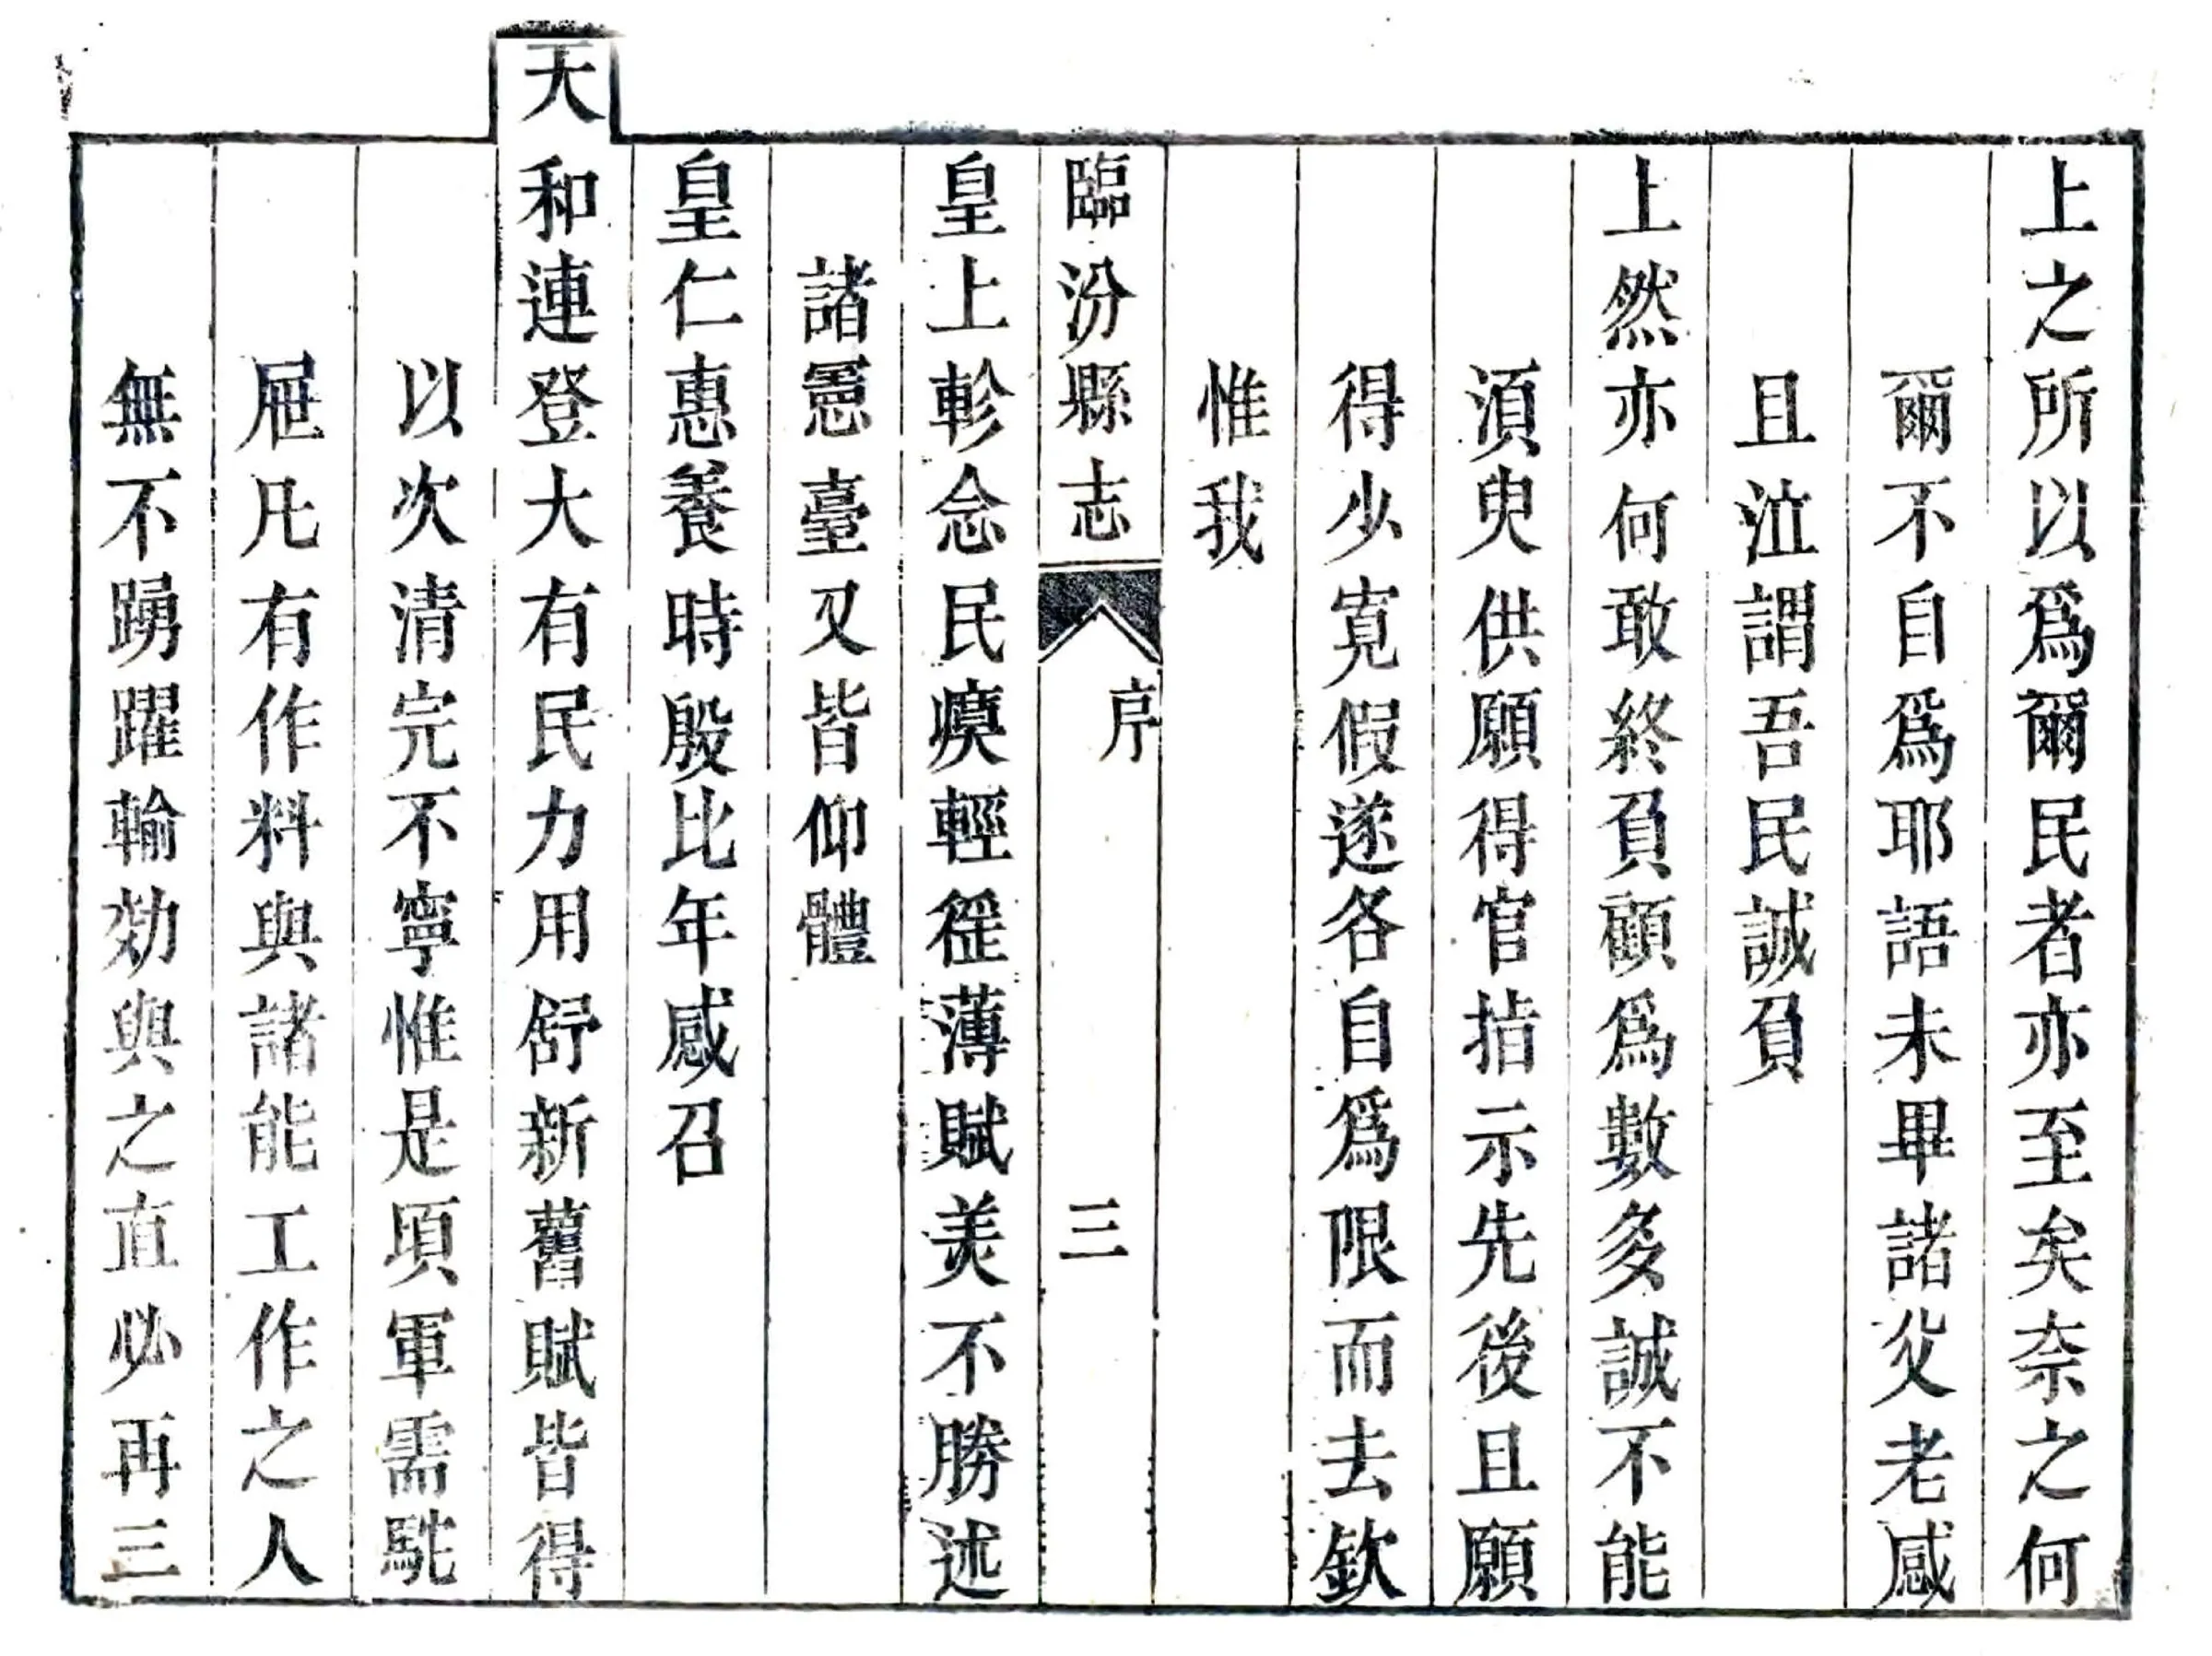 上之所以爲爾民者亦至矣奈之何
爾不自爲耶語未畢諸父老感
且泣謂吾民誠負
上然亦何敢終負顧爲數多誠不能
須臾供願得官指示先後且願
得少寬假遂各自爲限而去欽
惟我
臨汾縣志
序
三
皇上軫念民瘼輕徭薄賦美不勝述
諸憲臺又皆仰體
皇仁惠養時殷比年感召
天和連登大有民力用舒新舊賦皆得
以次清完不寧惟是頃軍需駝
屉凡有作料與諸能工作之人
無不踴躍輸効與之直必再三